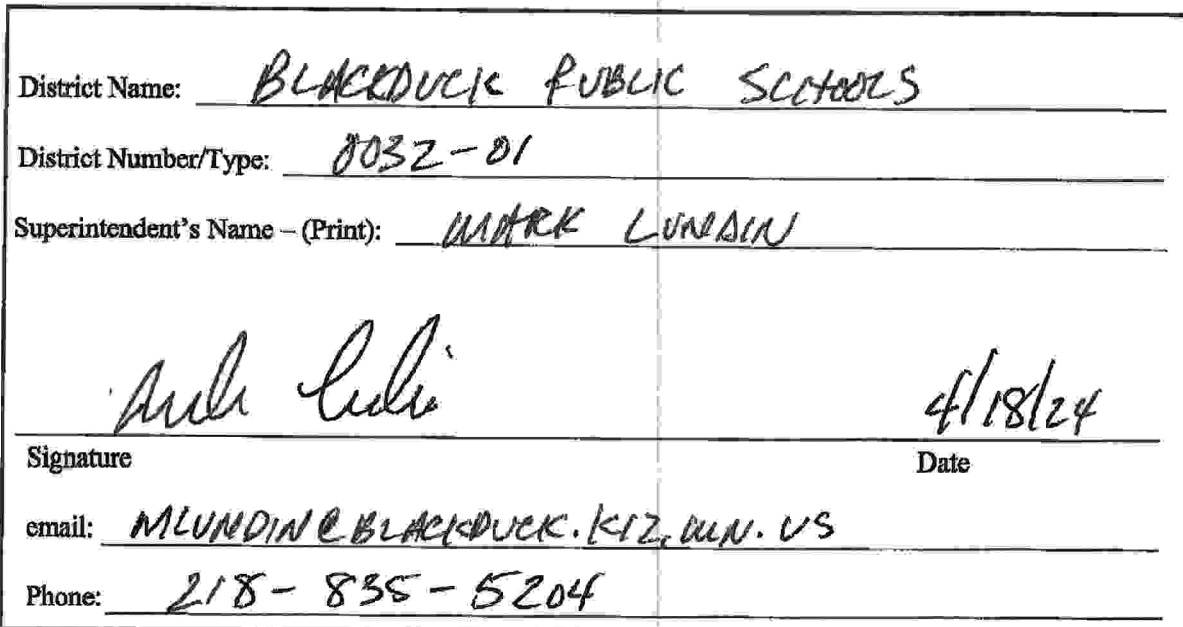 District Name: BLACKDUCK PUBLIC SCHOOLS
District Number/Type: 0032-01
Superintendent's Name – (Print): MARK LUNDIN
4/18/24
Signature Date
email: MLUNDIN@BLACKDUCK.K12.MN.US
Phone: 218-835-5204